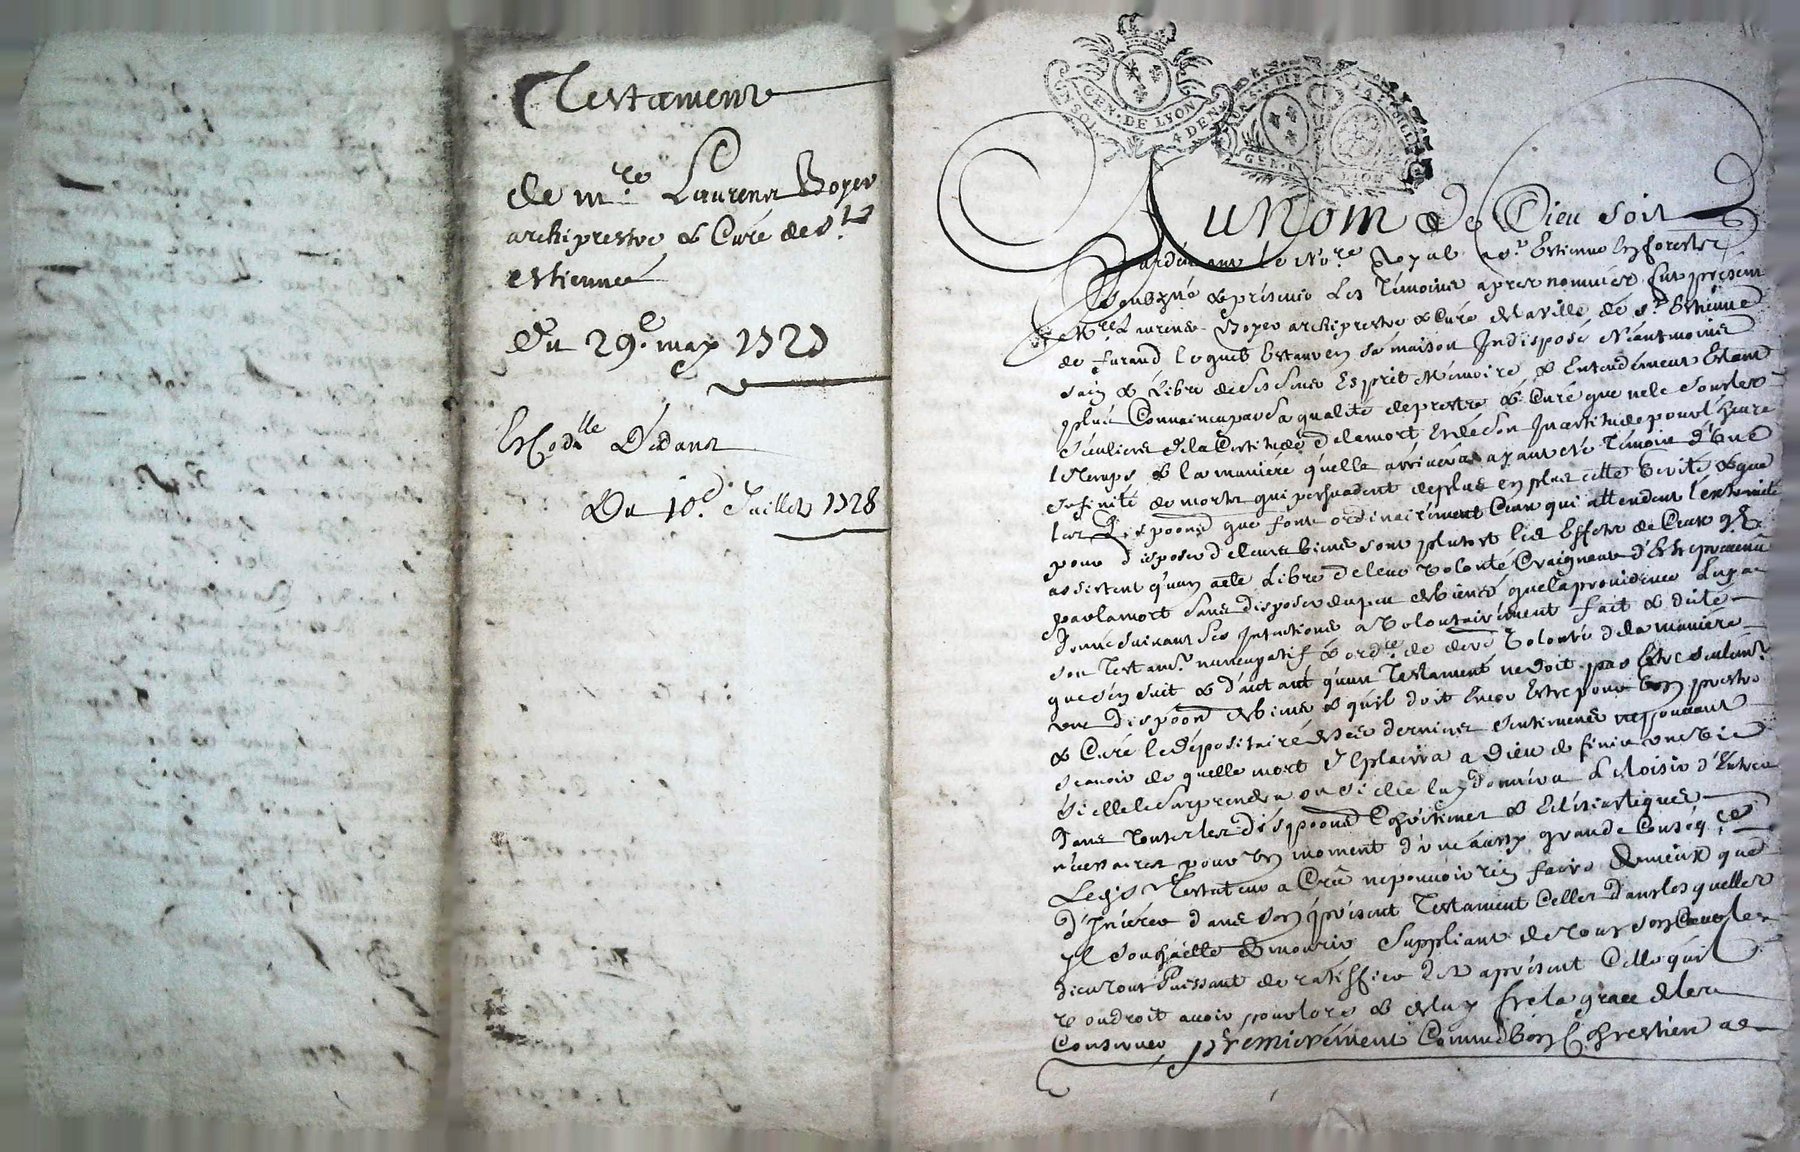 Testament
de mre Laurent Boyer
archiprestre & Curé de St
estienne
Du 29e may 1727
Et Codlle Dedans
Du 10e Juillet 1728
GEN. DE LYON
4 DEN
GEN LION
Au Nom de Dieu soit
Pardevant le Nore Royal de St Estienne en forest
Soubzné & présents Les Témoins apres nommés fut présent
Mre Laurens Boyer archiprestre & Curé de la ville de St Estienne
de furand lequel Estant en sa maison Indisposé Néantmoins
sain & Libre de ses sens Esprit Mémoire & Entendement Estant
plus Convaincu par sa qualité de prestre & Curé que ne le sont les
séculiers de la Certitude de la mort Et de son Incertitude pour l'heure
le temps & la manière qu'elle arrivera ayant été Témoin d'Une
Infinité de morts qui persuadent de plus en plus cette Vérité & que
les dispoons que font ordinairement Ceux qui attendent l'extremité
pour disposer de leurs biens sont plutost les Effets de Ceux qui
assistent qu'un acte Libre de leur Volonté Craignant d'Estre prévenu
par la mort sans disposer du peu de biens que la providence luy a
donné suivant ses Intentions a Volontairement fait & dicté
son Testamt nuncupatif & ordce de dere Volonté de la manière
que s'en suit & d'autant qu'un Testament ne doit pas Estre seulemt
une dispoon de biens & qu'il doit Encor Estre pour Un prestre
& Curé le dépositaire de ses derniers sentiments ne pouvant
scavoir de quelle mort Il plairra a Dieu de finir une Vie
Si elle le surprendra ou si elle luy donnera le Loisir d'Entrer
dans toutes les dispoons Chrétiennes & Eclésiastiques
nécessaires pour Un moment d'une aussy grande Conséqce
Ledit Testateur a Cru ne pouvoir rien faire de mieux que
d'Inserer dans son présent Testament Celles dans lesquelles
Il souhaitte de mourir Suppliant de tout son Coeur le
dieu tout Puissant de ratiffier dez a présent Celle qu'il
Voudroit avoir pour lors & de luy fre la grace de les
Conserver, premierement Comme bon Chrestien a